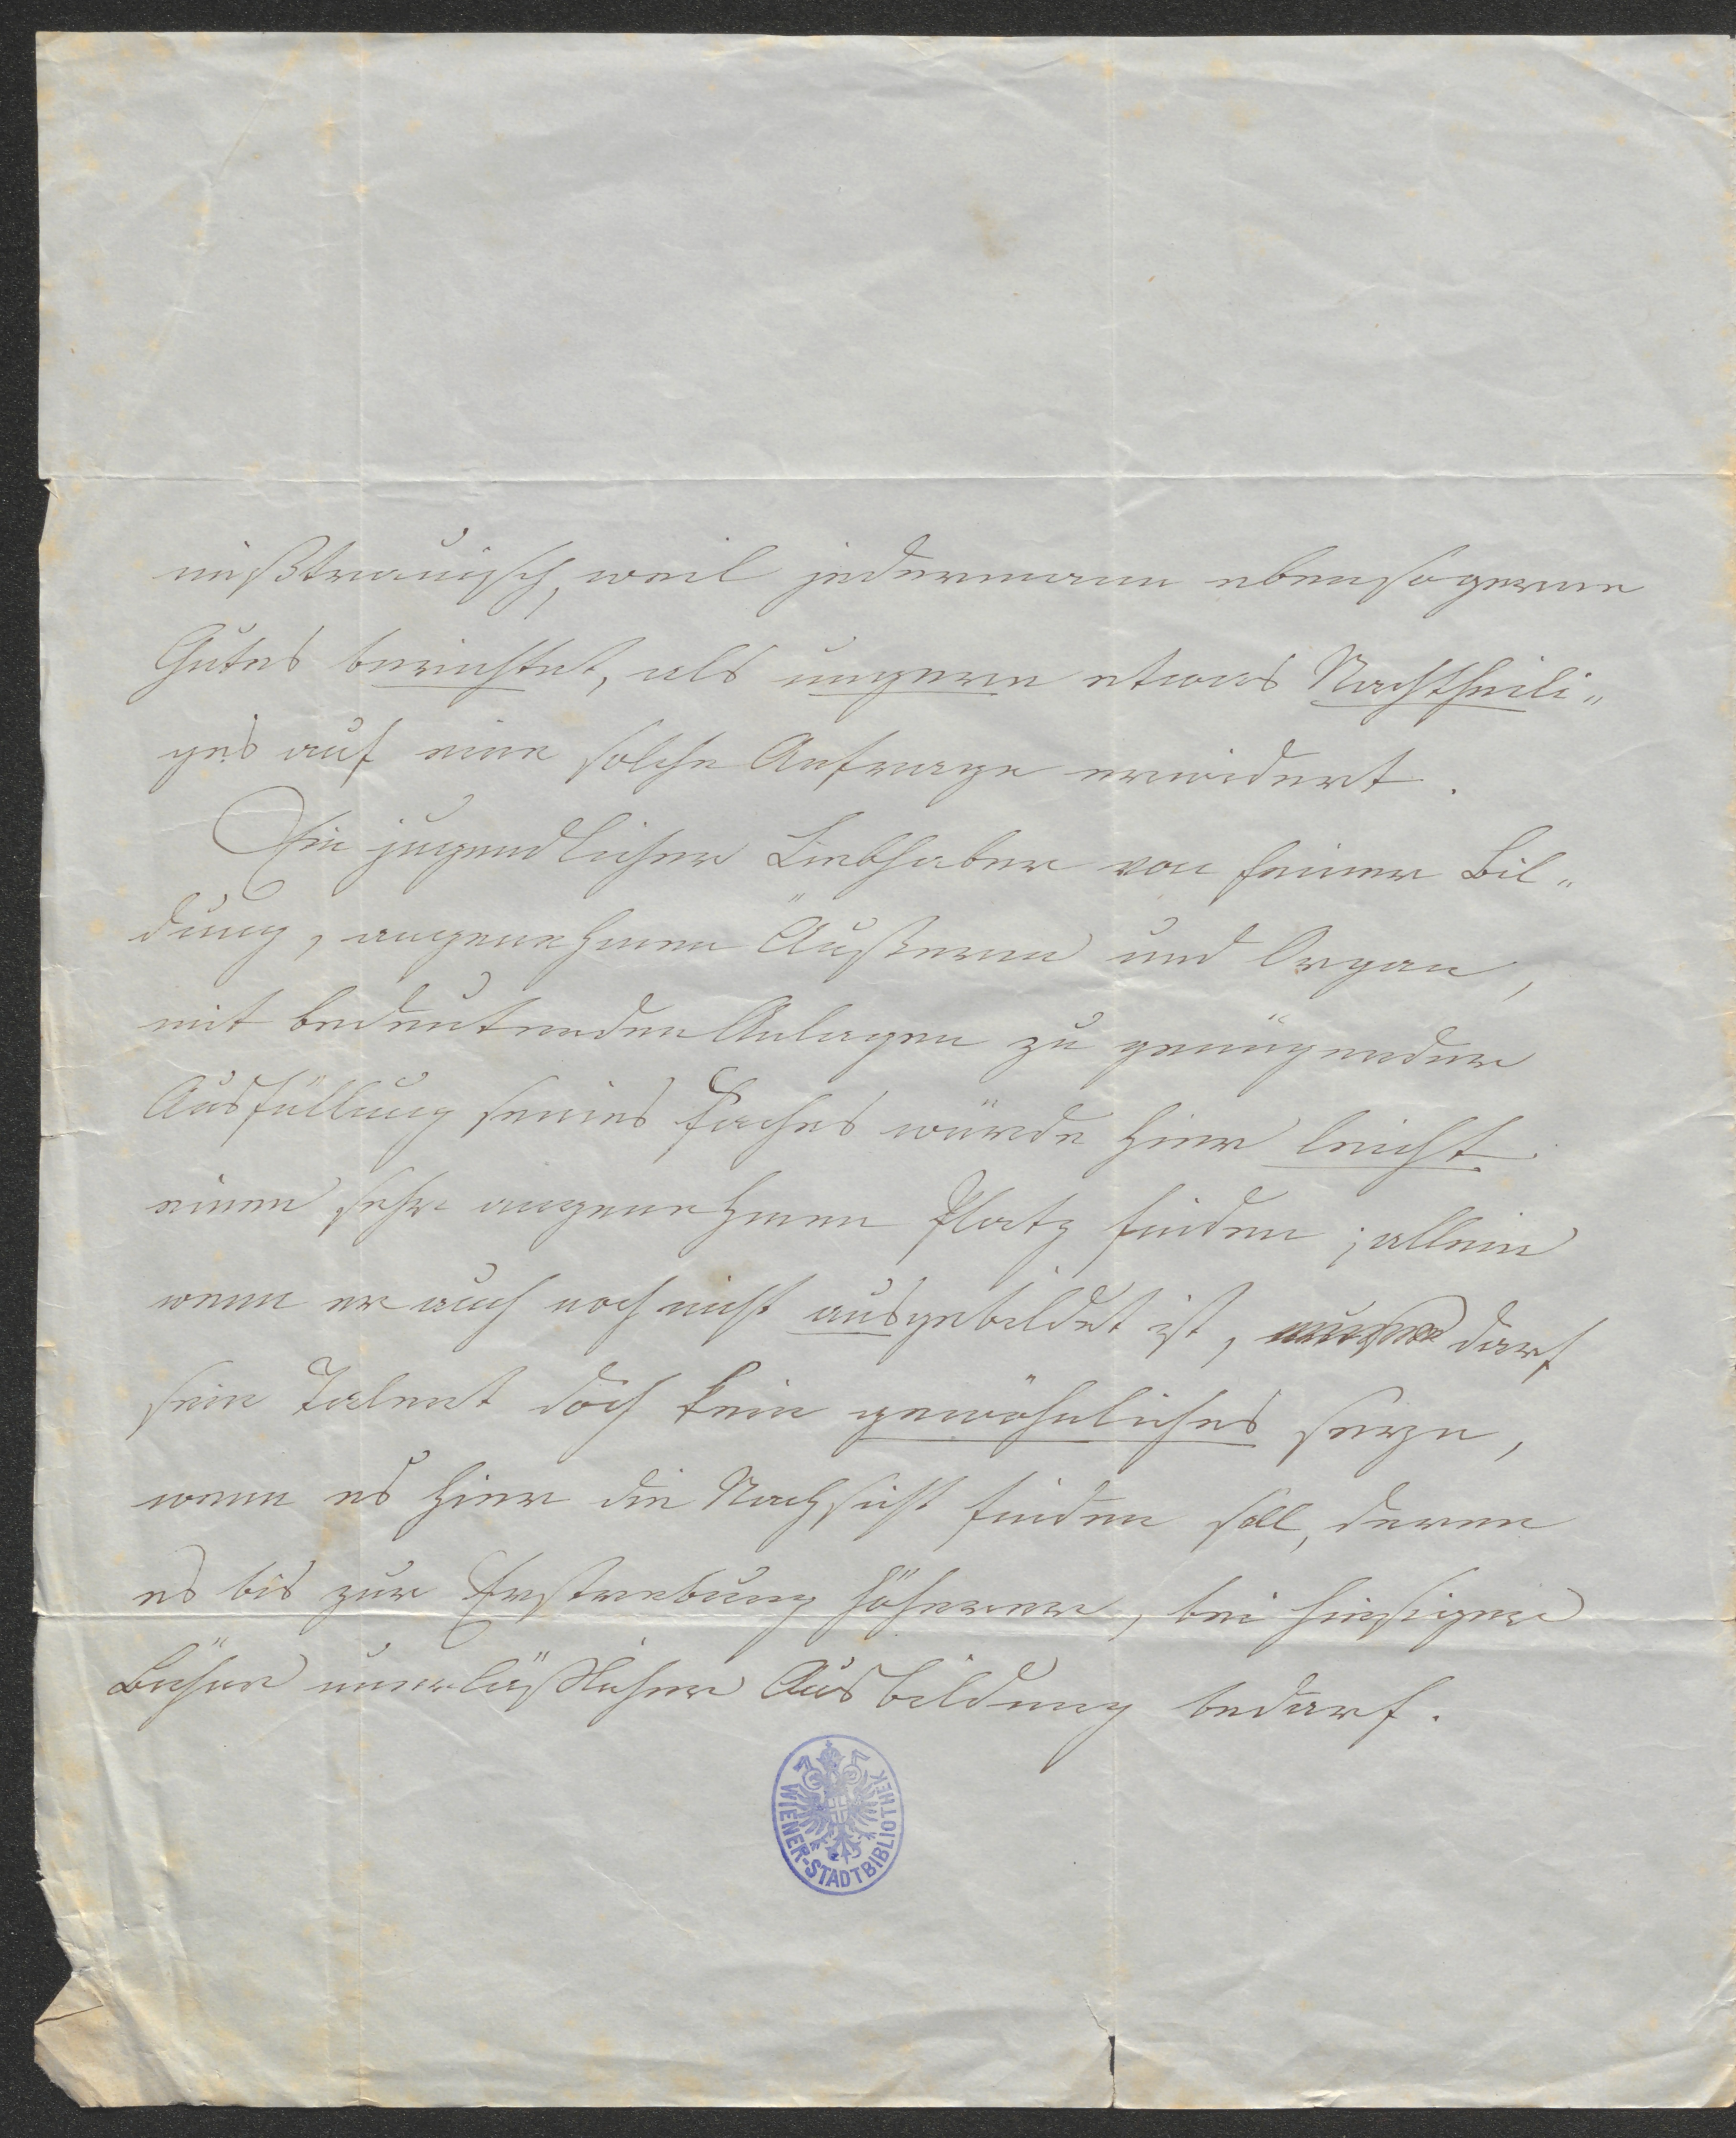 mißtrauisch, weil jedermann ebensogerne
Gutes berichtet, als ungern etwas Nachtheili„
ges auf eine solche Anfrage erwidert.
Ein jugendlicher Liebhaber von feiner Bil„
dung, angenehmen Äußeren und Organ,
mit bedeutenden Anlagen zu genügender
Ausfüllung seines Faches würde hier leicht
einen sehr angenehmen Platz finden; allein
wenn er auch noch nicht ausgebildet ist, darf
sein Talent doch kein gewöhnliches seyn,
wenn es hier die Nachsicht finden soll, deren
es bis zur Erstrebung höherer, bei hiesiger
Bühne unerläßlicher Ausbildung bedarf.
WIENER-STADTBIBLIOTHEK